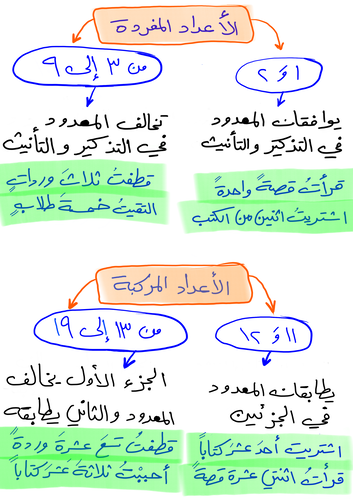 الأعداد المفردة
١ و ٢
من ٣ إلى ٩
يوافقان المعدود
في التذكير والتأنيث
قرأتُ قصةً واحدةً
اشتريتُ اثنين من الكتب
تخالف المعدود
في التذكير والتأنيث
قطفتُ ثلاثَ ورداتٍ
التقيتُ خمسةَ طلابٍ
الأعداد المركبة
١١ و ١٢
من ١٣ إلى ١٩
يطابقان المعدود
في الجزئين
اشتريت أحدَ عشرَ كتاباً
قرأتُ اثنتي عشرة قصةً
الجزء الأول يخالف
المعدود والثاني يطابقه
قطفتُ تسعَ عشرةَ وردةً
أحببتُ ثلاثةَ عشرَ كتاباً